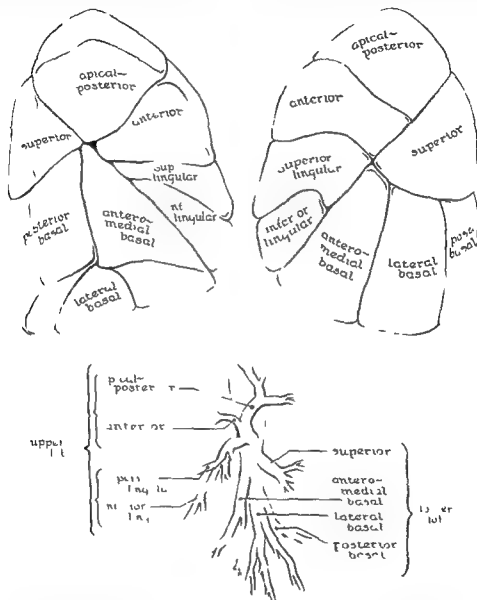 apical-
posterior
anterior
superior
lingular
lingular
posterior
basal
antero-
medial
basal
lateral
basal
apical-
posterior
anterior
superior
superior
lingular
inferior
lingular
antero-
medial
basal
lateral
basal
basal
anterior
superior
antero-
medial
basal
lateral
basal
posterior
basal